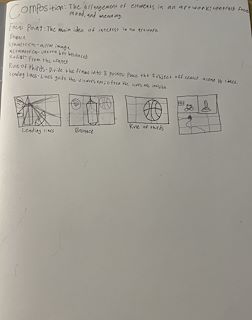 Composition: The arrangement of elements in an art work; contrast, focus,
mood, and meaning.
Focal Point: The main idea of interest in an artwork
Balance
Symmetrical -
Asymmetrical - uneven but balanced
Radial - from the center
Rule of thirds - Divide the frame into 9 points. Place the subject off center
Leading lines - Lines guide the viewers eyes
Leading lines
Balance
Rule of thirds